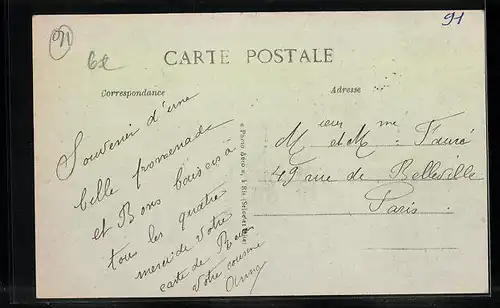 91
91
6e
CARTE POSTALE
Correspondance
Adresse
Souvenir d'une
belle promenade
et Bons baisers à
tous les quatre
merci de votre
carte de
votre cousine
Anna
Mieur et Mme Fauré
49 rue de Belleville
Paris.